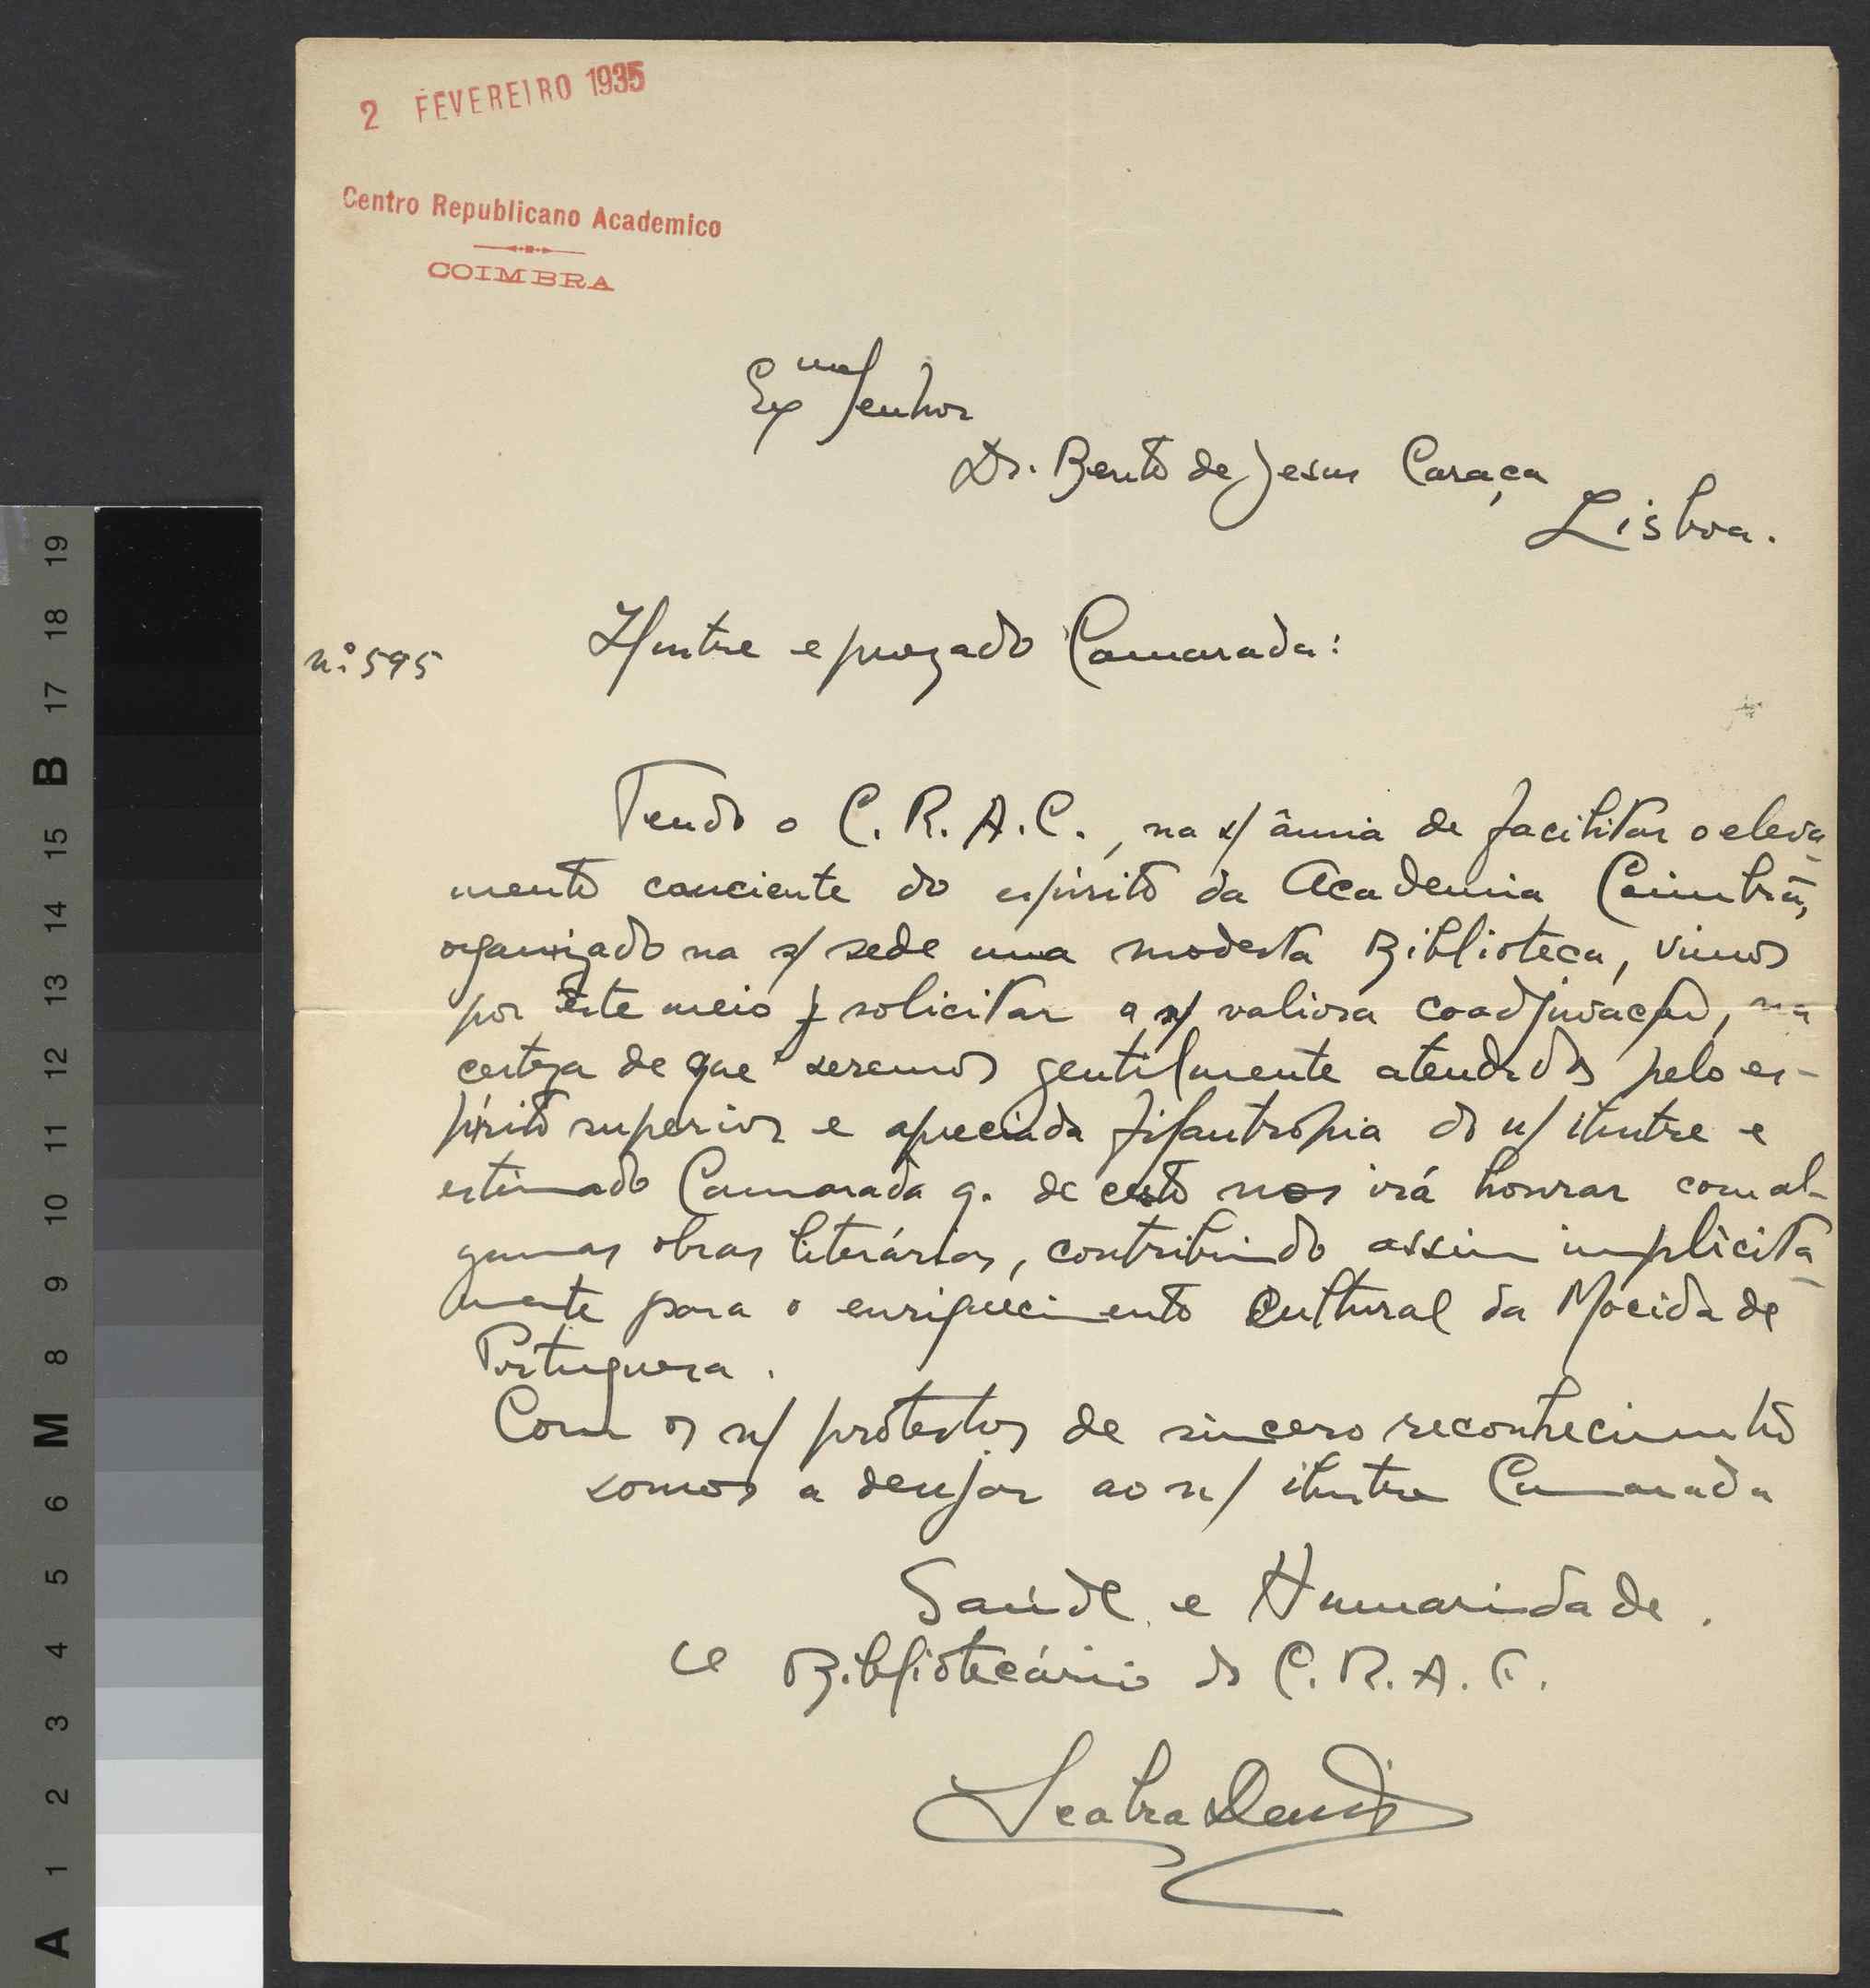 2 FEVEREIRO 1935
Centro Republicano Academico
COIMBRA
Exmo Senhor
Dr. Bento de Jesus Caraça
Lisboa.
n.º 595
Ilustre e prezado Camarada:
Tendo o C. R. A. C., na s/ ânsia de facilitar o eleva-
mento conciente do espirito da Academia Coimbrã,
organizado na s/ sede uma modesta Biblioteca, vimos
por êste meio solicitar a s/ valiosa coadjuvação, na
certeza de que seremos gentilmente atendidos pelo es-
pirito superior e apreciada filantropia do n/ ilustre e
estimado Camarada q. de certo nos irá honrar com al-
gumas obras literárias, contribuindo assim implicita-
mente para o enriquecimento Cultural da Mocidade
Portuguesa.
Com os n/ protestos de sincero reconhecimento
somos a desejar ao n/ ilustre Camarada
Saúde e Humanidade.
O Bibliotecário do C. R. A. C.
Seabra Denis
19
18
17
B
15
14
13
12
11
10
9
8
M
6
5
4
3
2
1
A